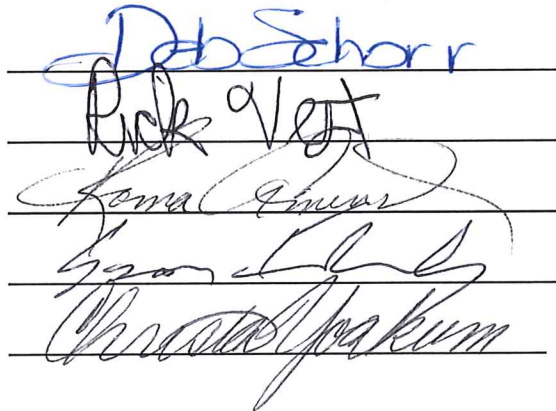 Deb Schorr
Rick Vest
Roma Amundson
Christa Yoakum